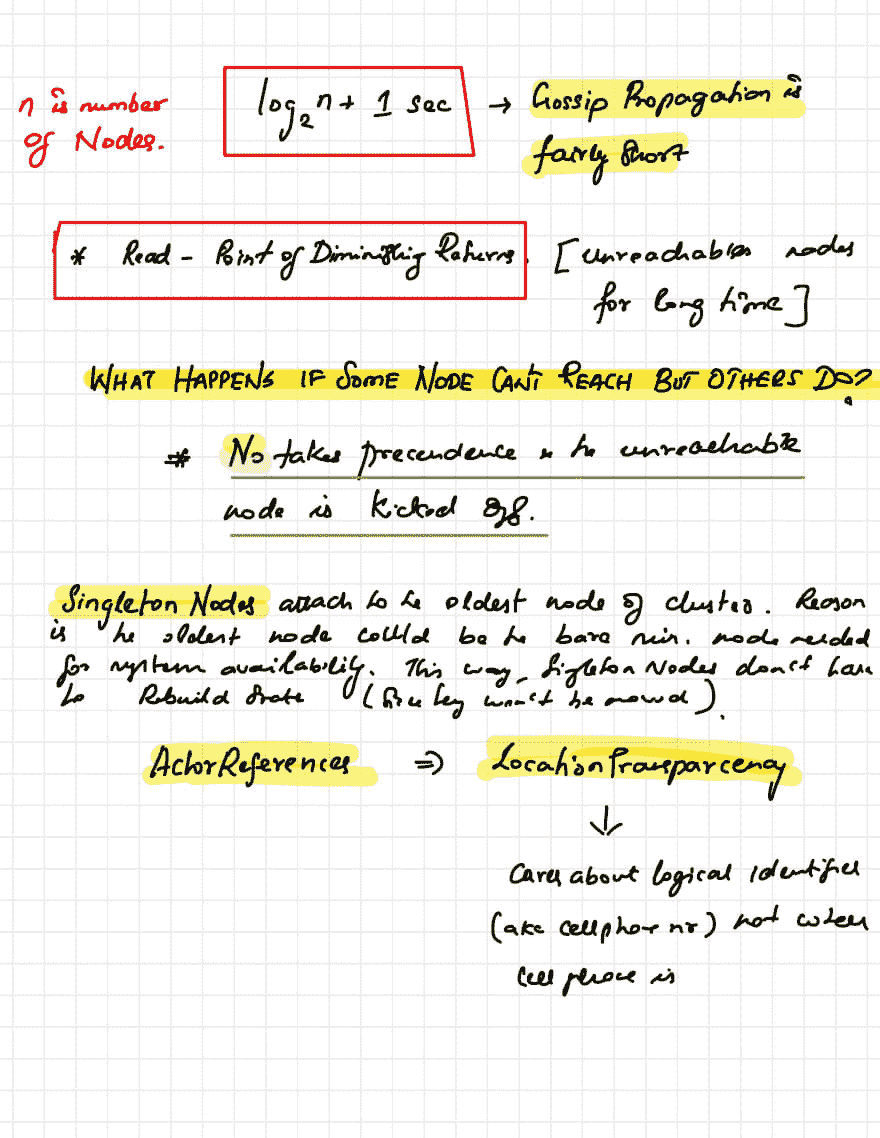 n is number
of Nodes.
log₂ n + 1 sec → Gossip Propagation is
fairly short
* Read - Point of Diminishing Returns. [unreachable nodes
for long time]
WHAT HAPPENS IF SOME NODE CAN'T REACH BUT OTHERS DO?
* No takes precendence & he unreachable
node is kicked off.
Singleton Nodes attach to he oldest node of cluster. Reason
is he oldest node could be he bare min. node needed
for system availability. This way, Singleton Nodes don't have
to Rebuild State (since they won't be moved).
ActorReferences ⇒ LocationTransparcency
↓
Cares about logical identifier
(aka cellphone nr) not where
cell phone is